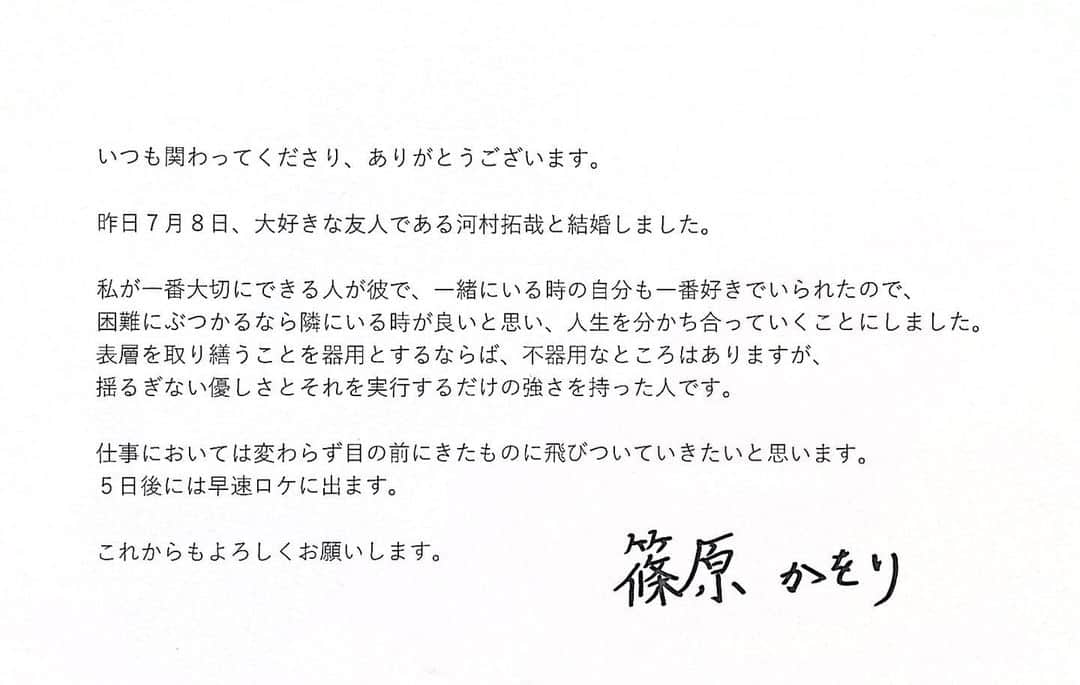 いつも関わってくださり、ありがとうございます。
昨日７月８日、大好きな友人である河村拓哉と結婚しました。
私が一番大切にできる人が彼で、一緒にいる時の自分も一番好きでいられたので、
困難にぶつかるなら隣にいる時が良いと思い、人生を分かち合っていくことにしました。
表層を取り繕うことを器用とするならば、不器用なところはありますが、
揺るぎない優しさとそれを実行するだけの強さを持った人です。
仕事においては変わらず目の前にきたものに飛びついていきたいと思います。
５日後には早速ロケに出ます。
これからもよろしくお願いします。
篠原 かをり